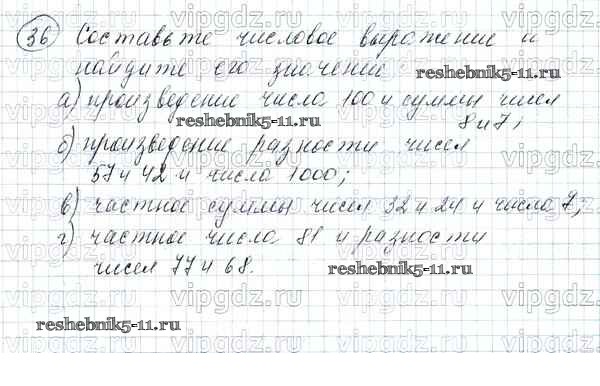 36 Составьте числовое выражение и
найдите его значение:
reshebnik5-11.ru
а) произведение числа 100 и суммы чисел
8 и 7;
reshebnik5-11.ru
б) произведение разности чисел
57 и 42 и числа 1000;
в) частное суммы чисел 32 и 24 и числа 7;
г) частное числа 81 и разности
чисел 77 и 68.
reshebnik5-11.ru
reshebnik5-11.ru
vipgdz.ru